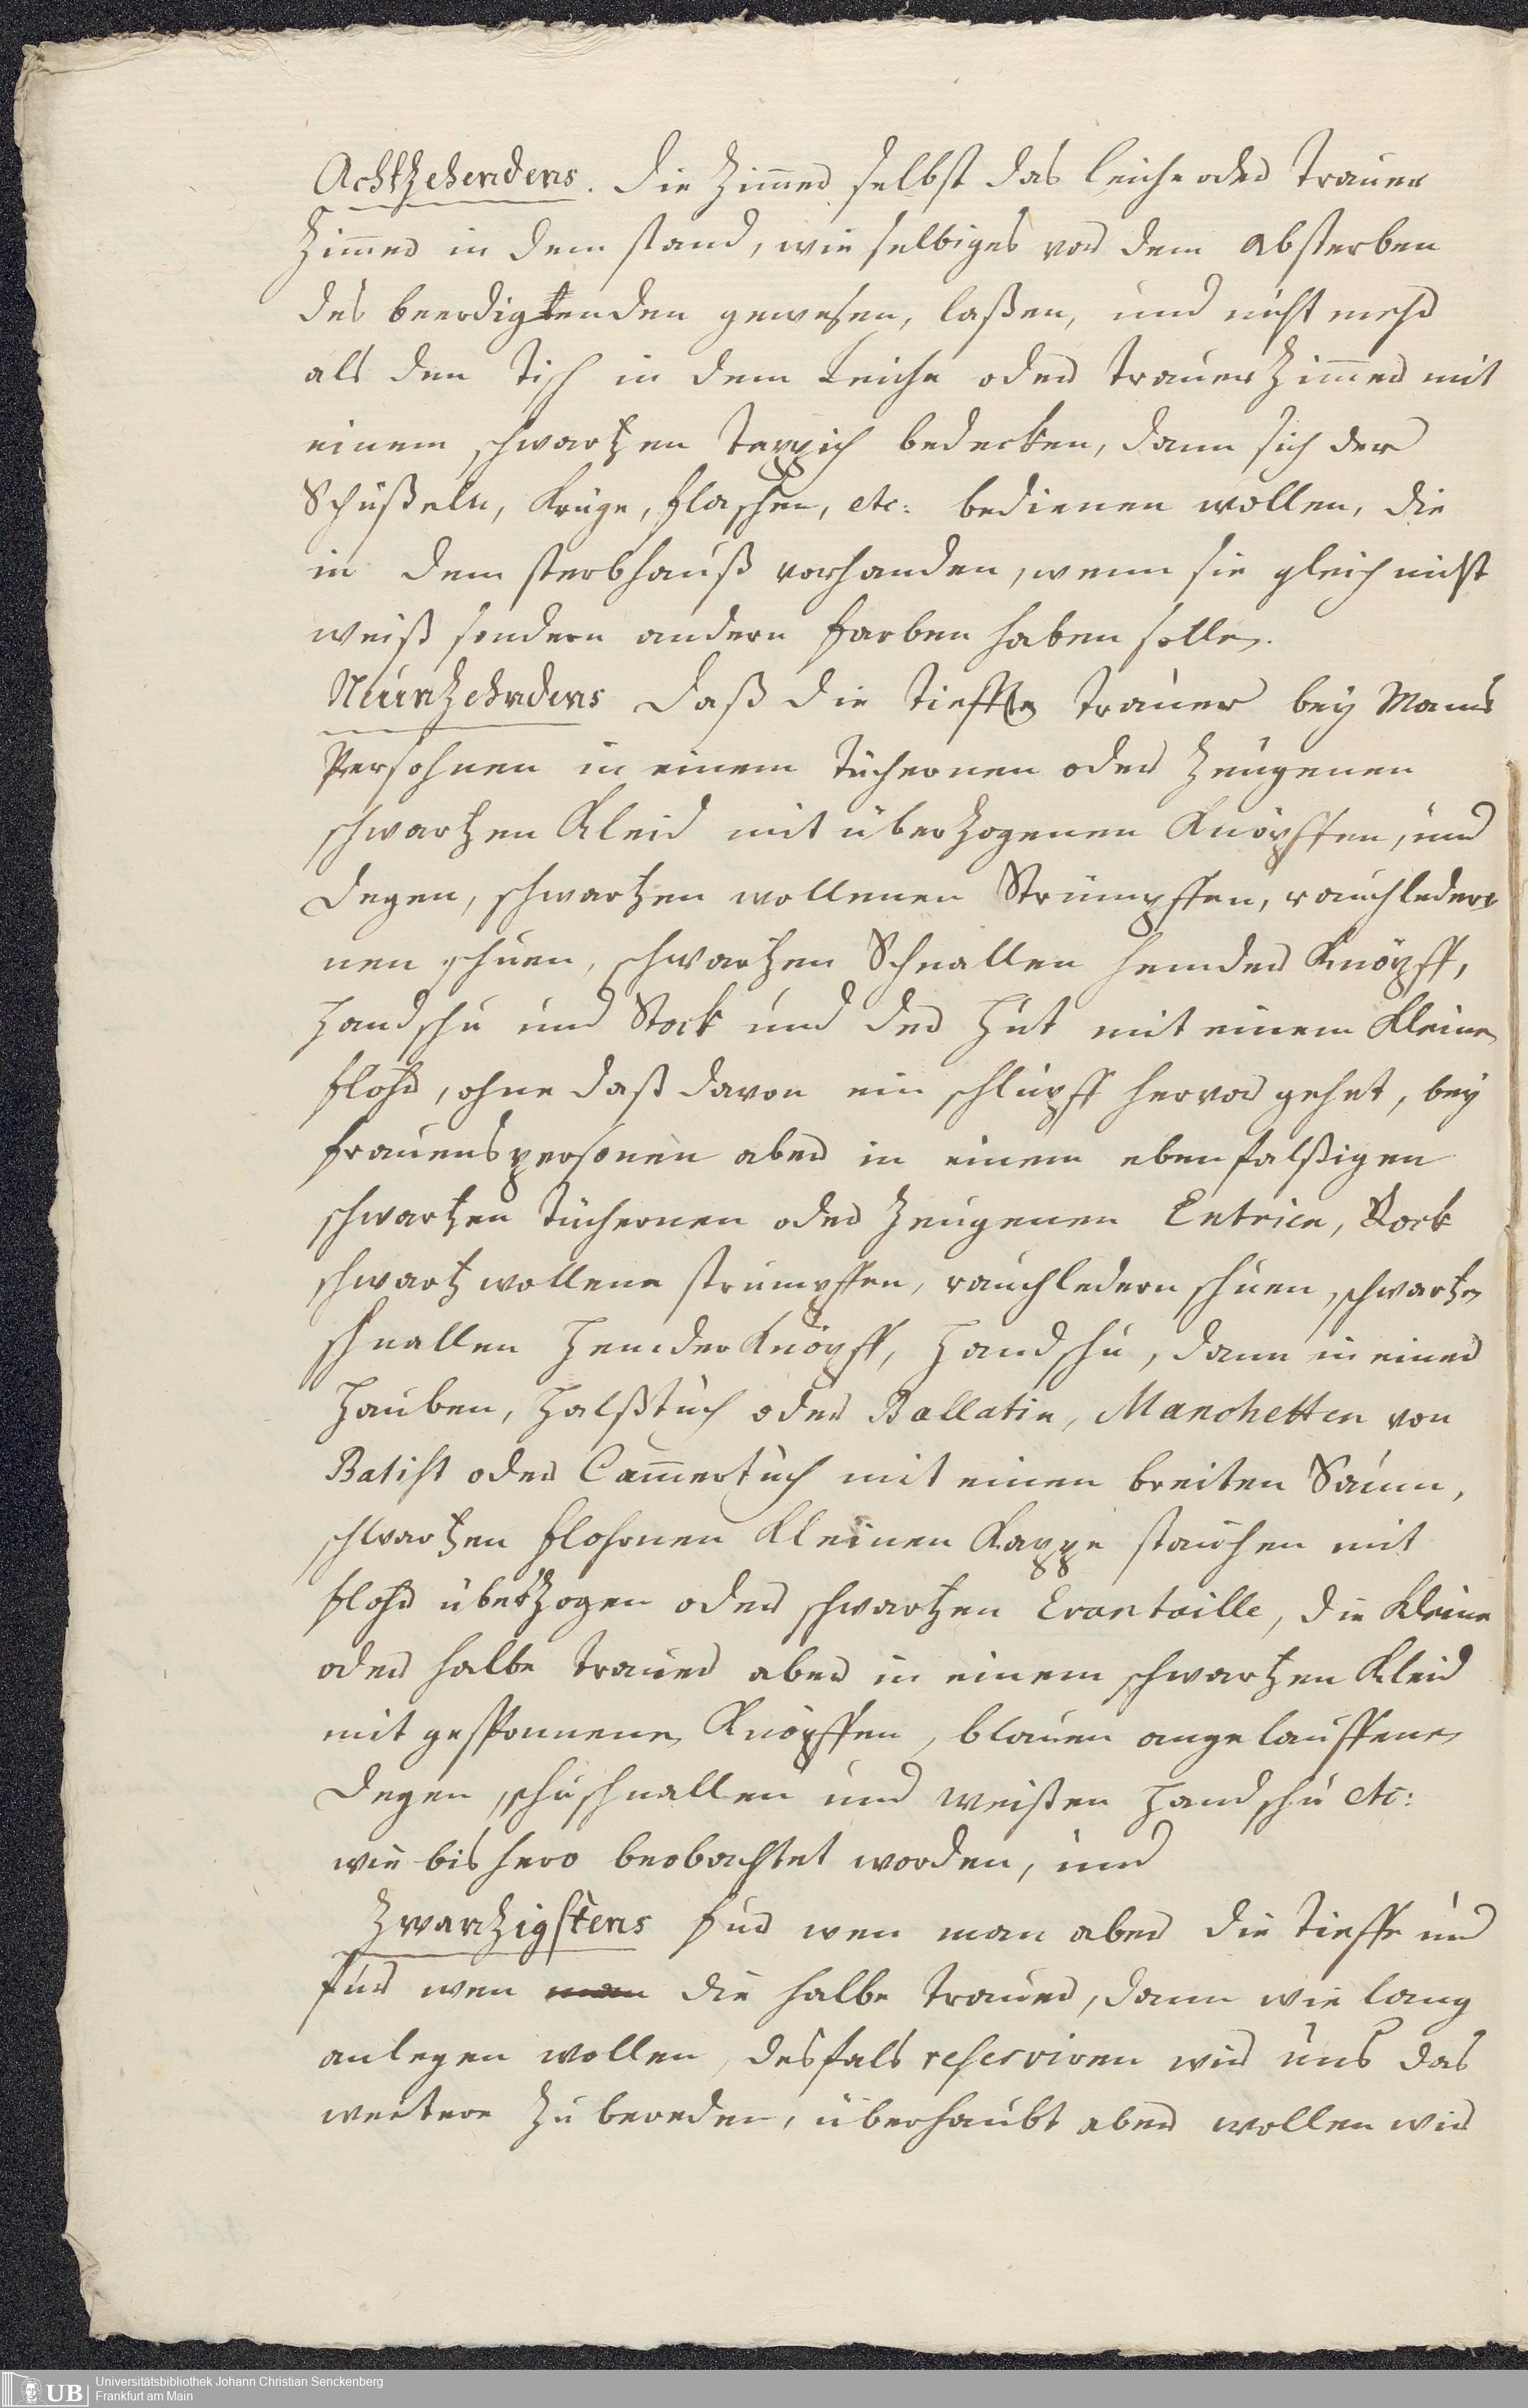 Achtzehendens. die Zimmer selbst das leiche oder Trauer
Zimmer in dem stand, wie selbiges vor dem absterben
des beerdigtenden gewesen, laßen, und nicht mehr
als den Tisch in dem Leiche oder Trauer Zimmer mit
einem schwartzen Teppich bedecken, dann sich der
Schüßeln, Krüge, flaschen, etc: bedienen wollen, die
in dem sterbhauß vorhanden, wenn sie gleich nicht
weiß sondern andern farben haben sollen.
Neunzehndens daß die tieffste Trauer bey Manns
Persohnen in einem Tüchernen oder Zeugenen
schwartzen Kleid mit überzogenen Knöpffen, und
Degen, schwartzen wollenen Strümpffen, rauchleder-
nen schuen, schwartzen Schnallen hemder Knöpff,
Handschu und Stock und der Hut mit einem kleinen
flohr, ohne daß davon ein schlupff hervor gehet, bey
frauenspersonen aber in einem ebenfalßigen
schwartzen Tüchernen oder Zeugenen Entrien, Rock
schwartz wollene strümpffen, rauchledern schuen, schwartzen
schnallen Hemder Knöpff, Handschu, dann in einer
Hauben, Halßtuch oder Ballatin, Manchetten von
Batist oder Cammertuch mit einen breiten Saum,
schwartzen flohrnen kleinen Kappe stauchen mit
flohr überzogen oder schwartzen Evantaille, die kleine
oder halbe Trauer aber in einem schwartzen Kleid
mit gesponnenen Knöpffen, blauen angelauffenen
Degen, schuschnallen und weißen Handschu etc:
wie bishero beobachtet worden, und
Zwanzigstens für wen man aber die tieffe und
für wen man die halbe Trauer, dann wie lang
anlegen wollen, desfals reserviren wir uns das
weitere zu bereden, überhaubt aber wollen wir
UB
Universitätsbibliothek Johann Christian Senckenberg
Frankfurt am Main